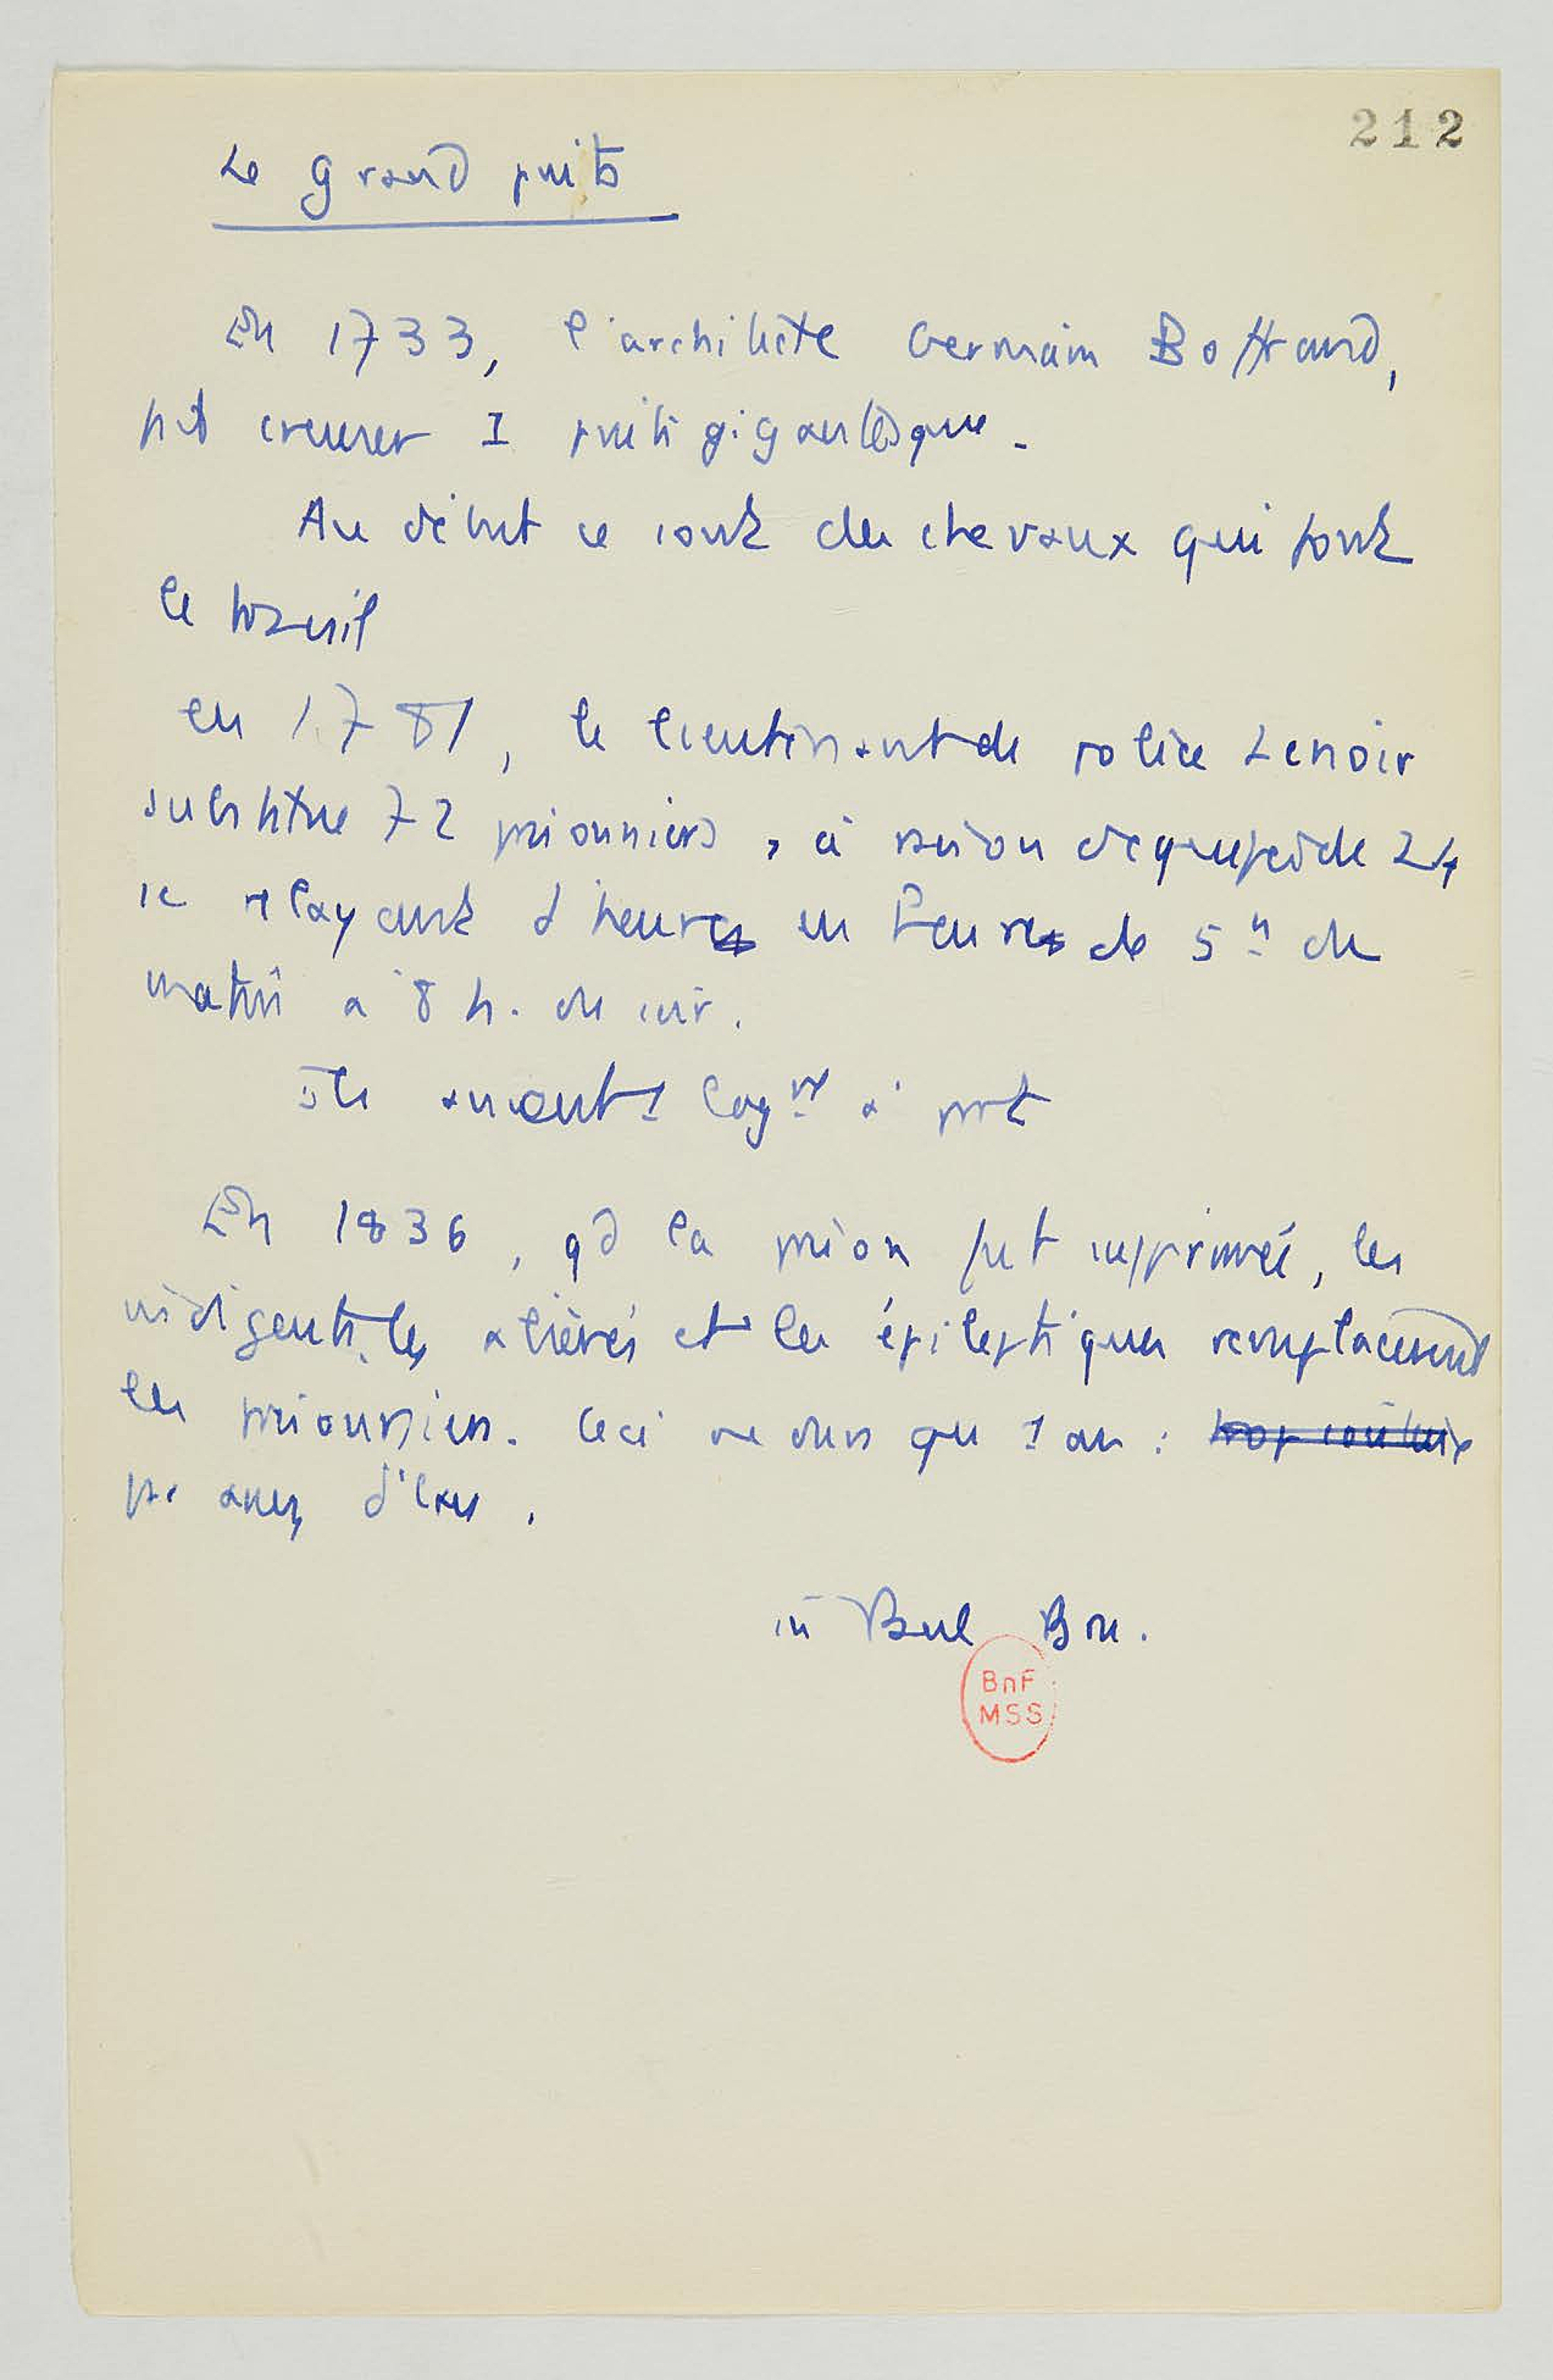 212
Le grand puits
En 1733, l'architecte Germain Boffrand,
fit creuser 1 puits gigantesque.
Au début ce sont des chevaux qui font
le travail
en 1781, le lieutenant de police Lenoir
substitue 72 prisonniers, à raison de groupes de 24
se relayant d'heure en heure de 5h du
matin à 8 h. du soir.
Ils avaient 1 log^nt à part
En 1836, qd la prison fut supprimée, les
indigents, les aliénés et les épileptiques remplacèrent
les prisonniers. Ceci ne dura qu 1 an : trop coûteux
pas assez d'eau.
in Baul Bru.
BnF
MSS